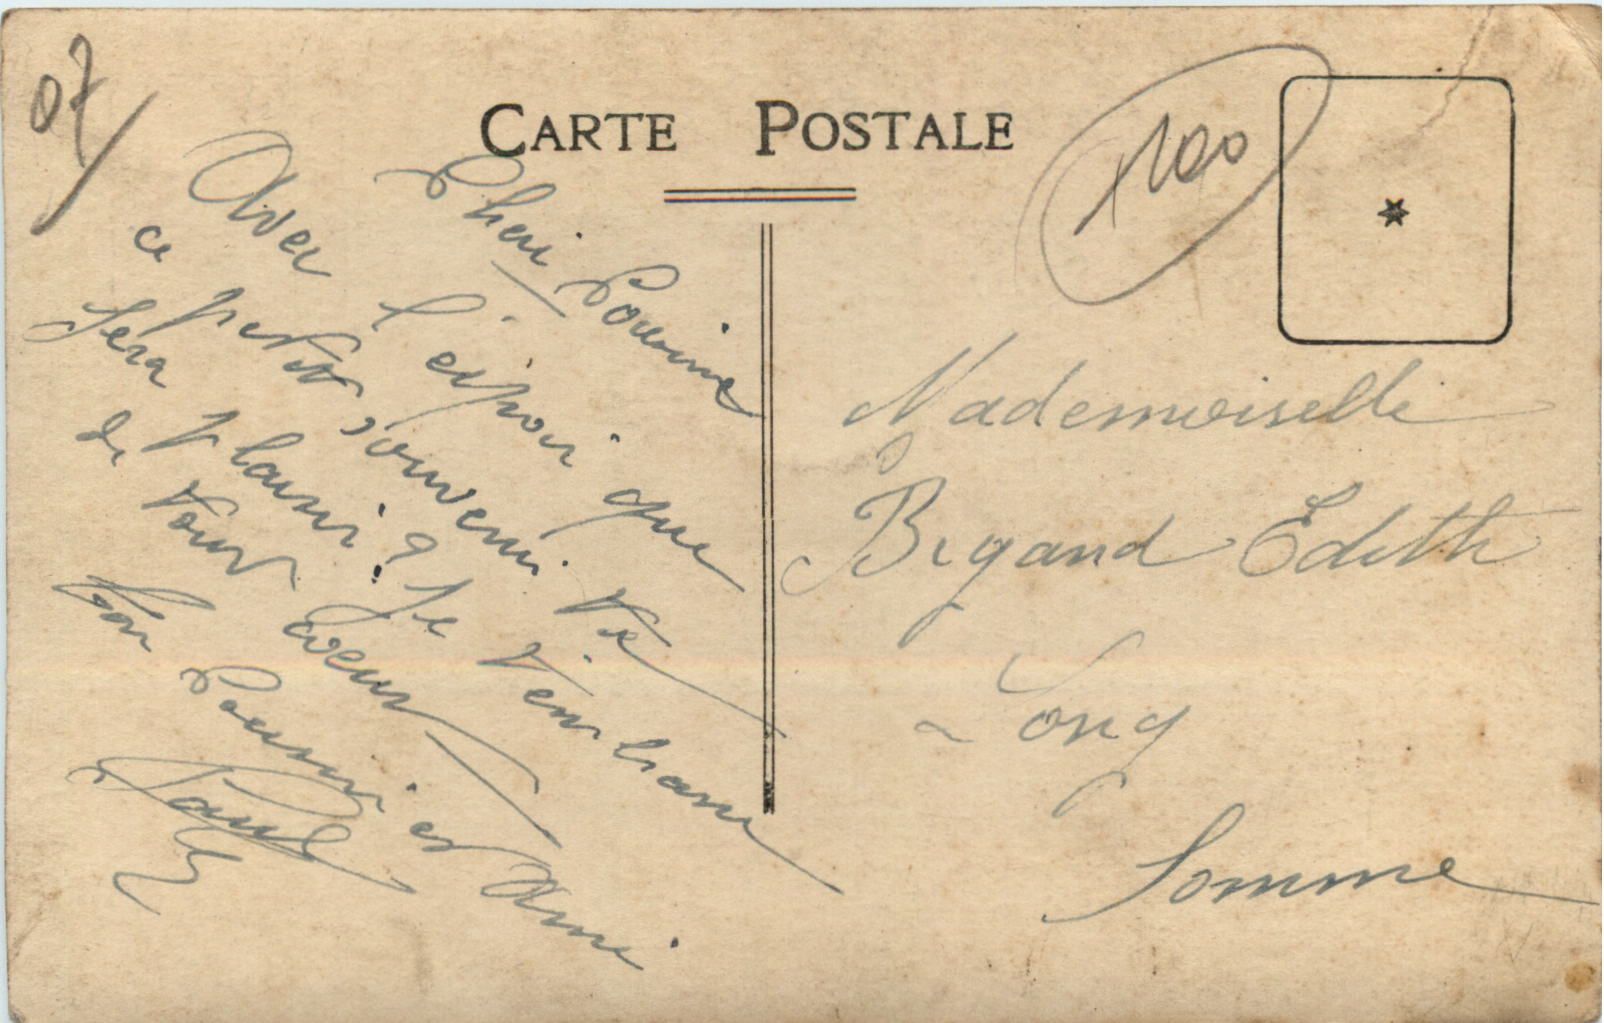 07
CARTE POSTALE
100
Cheri Cousine
Avec l'espoir que
ce petit souvenir te
fera plaisir ? Je t'embrasse
de tout coeur
Ton Cousin et Ami
Paul
Mademoiselle
Brgand Edith
a Long
Somme